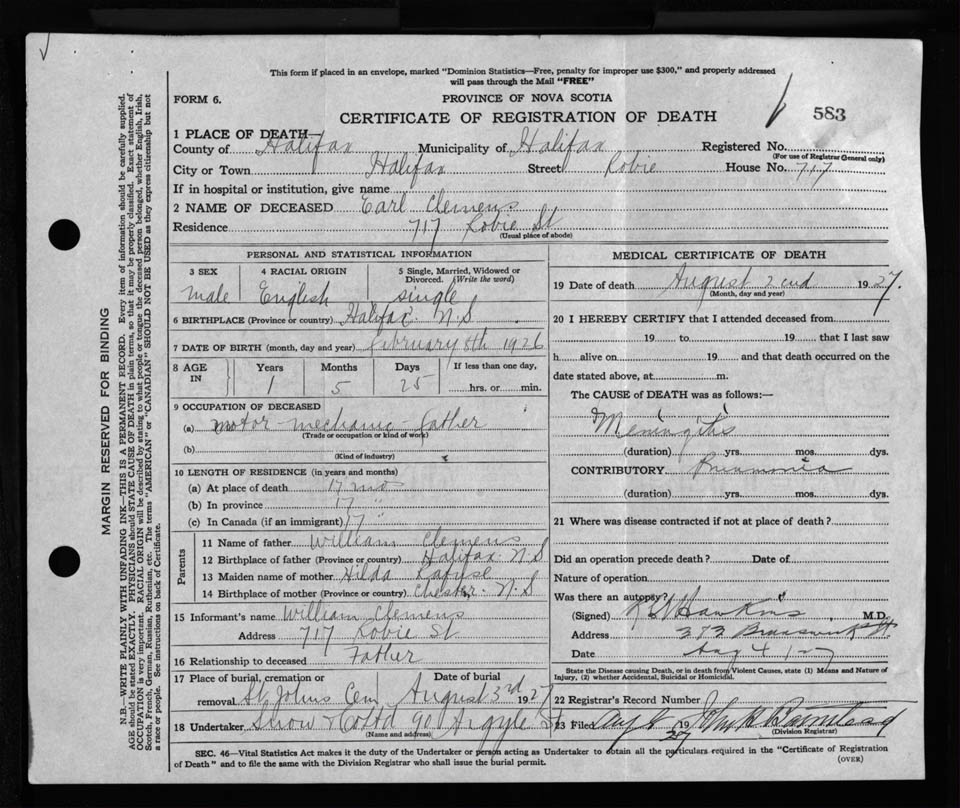 This form if placed in an envelope, marked "Dominion Statistics—Free, penalty for improper use $300," and properly addressed
will pass through the Mail "FREE"
FORM 6.
PROVINCE OF NOVA SCOTIA
CERTIFICATE OF REGISTRATION OF DEATH
583
1 PLACE OF DEATH—
County of Halifax Municipality of Halifax Registered No.
(For use of Registrar General only)
City or Town Halifax Street Robie House No. 717
If in hospital or institution, give name
2 NAME OF DECEASED Earl Clemens
Residence 717 Robie St
(Usual place of abode)
PERSONAL AND STATISTICAL INFORMATION
3 SEX 4 RACIAL ORIGIN 5 Single, Married, Widowed or Divorced. (Write the word)
male English single
6 BIRTHPLACE (Province or country) Halifax N.S
7 DATE OF BIRTH (month, day and year) February 8th 1926
8 AGE IN Years Months Days If less than one day,
1 5 25 hrs. or min.
9 OCCUPATION OF DECEASED
(a) motor mechanic father
(Trade or occupation or kind of work)
(b)
(Kind of industry)
10 LENGTH OF RESIDENCE (in years and months)
(a) At place of death 17 mos
(b) In province 17 "
(c) In Canada (if an immigrant) 17 "
Parents
11 Name of father William Clemens
12 Birthplace of father (Province or country) Halifax N S
13 Maiden name of mother Hilda
14 Birthplace of mother (Province or country) Chester N.S
15 Informant's name William Clemens
Address 717 Robie St
16 Relationship to deceased Father
17 Place of burial, cremation or removal Date of burial
St Johns Cem August 3rd 1927
18 Undertaker Snow & Co Ltd 90 Argyle St
(Name and address)
MEDICAL CERTIFICATE OF DEATH
19 Date of death August 2nd 1927.
(Month, day and year)
20 I HEREBY CERTIFY that I attended deceased from
19 to 19 that I last saw
h alive on 19 and that death occurred on the
date stated above, at m.
The CAUSE OF DEATH was as follows:—
Meningitis
(duration) yrs. mos. dys.
CONTRIBUTORY Pneumonia
(duration) yrs. mos. dys.
21 Where was disease contracted if not at place of death?
Did an operation precede death? Date of
Nature of operation
Was there an autopsy?
(Signed) Hawkins, M.D.
Address 373 Brunswick St.
Date Aug 4 / 27
State the Disease causing Death, or in death from Violent Causes, state (1) Means and Nature of
Injury, (2) whether Accidental, Suicidal or Homicidal.
22 Registrar's Record Number
23 Filed 1927
(Division Registrar)
SEC. 46—Vital Statistics Act makes it the duty of the Undertaker or person acting as Undertaker to obtain all the particulars required in the "Certificate of Registration
of Death" and to file the same with the Division Registrar who shall issue the burial permit.
(OVER)
MARGIN RESERVED FOR BINDING
N.B.—WRITE PLAINLY WITH UNFADING INK—THIS IS A PERMANENT RECORD. Every item of information should be carefully supplied.
AGE should be stated EXACTLY. PHYSICIANS should STATE CAUSE OF DEATH in plain terms, so that it may be properly classified. Exact statement of
OCCUPATION is very important. RACIAL ORIGIN will be described by stating to what people or tongue the deceased person belonged, whether English, Irish,
Scotch, French, German, Russian, Ruthenian, etc. The terms "AMERICAN" or "CANADIAN" SHOULD NOT BE USED as they express citizenship but not
a race or people. See instructions on back of Certificate.